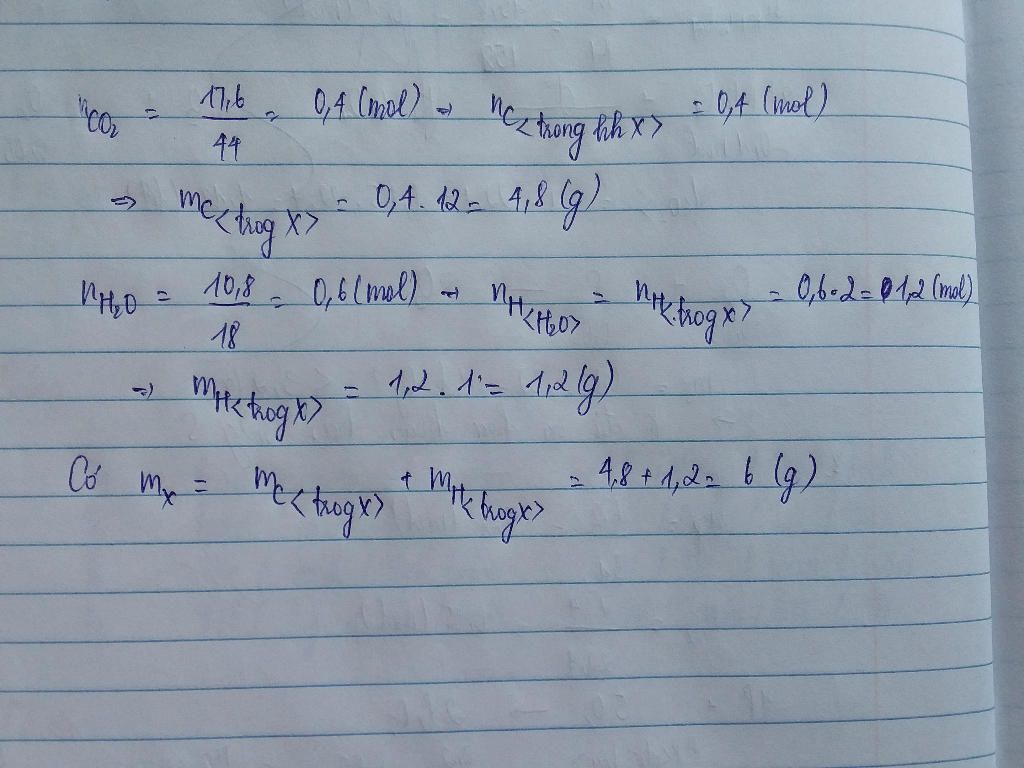 nCO2 = 17,6/44 = 0,4 (mol) → nC<trong hh X> = 0,4 (mol)
⇒ mC<trog X> = 0,4 . 12 = 4,8 (g)
nH2O = 10,8/18 = 0,6 (mol) → nH<H2O> = nH<trog X> = 0,6.2 = 1,2 (mol)
⇒ mH<trog X> = 1,2 . 1 = 1,2 (g)
Có mx = mC<trog X> + mH<trog X> = 4,8 + 1,2 = 6 (g)